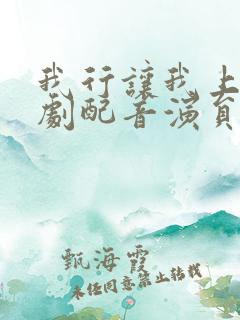 我行讓我上
劇配音演員
甄海霞
未經同意禁止轉載